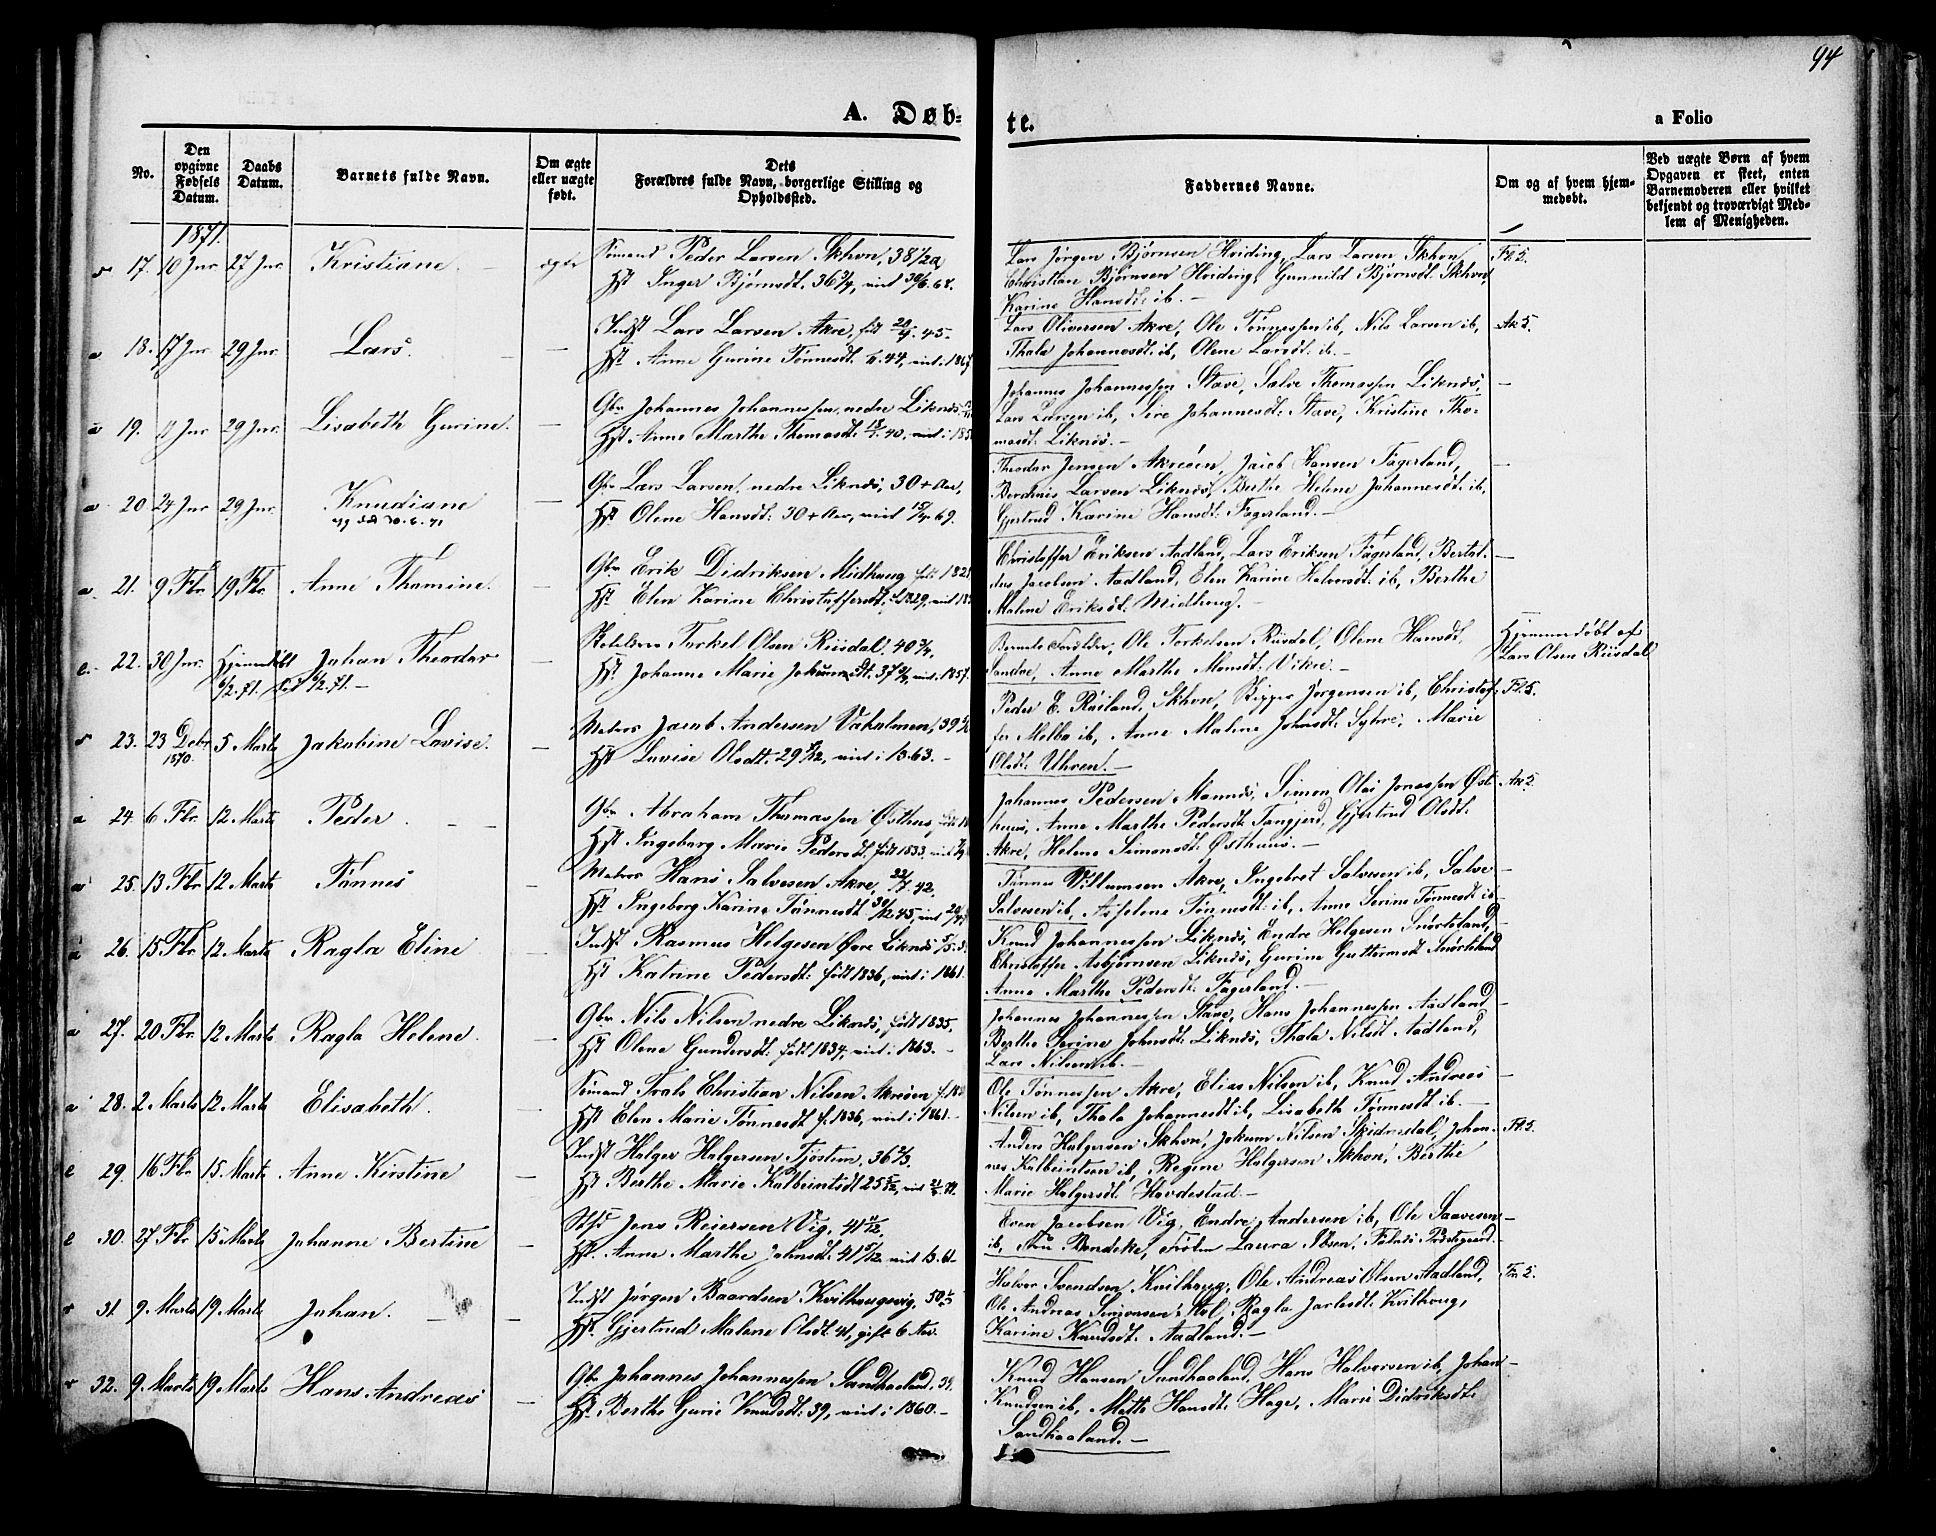 94
A. Døb-
te.
a Folio
No.
Den opgivne Fødsels Datum.
Daabs Datum.
Barnets fulde Navn.
Om ægte eller uægte født.
Dets
Forældres fulde Navn, borgerlige Stilling og Opholdssted.
Faddernes Navne.
Om og af hvem hjemmedøbt.
Ved uægte Børn af hvem Opgaven er skeet, enten Barnemoderen eller hvilket bekjendt og troværdigt Medlem af Menigheden.
1871.
17. 10 Jnr 27 Jnr Kristiane. ægte
Sømand Peder Larsen Skhvn, 38 1/2 a
Hst Inger Bjørnsdt. 36 3/4, viet 30/6. 68.
Lars Jørgen Bjørnsen Hviding, Lars Larsen Skhvn
Christian Bjørnsen Hviding, Gunnild Bjørnsdt. Skhvn,
Karine Hansdt. ib. —
Fl. S.
18. 17 Jnr 29 Jnr Lars.
Indst Lars Larsen Akre, født 45.
Hst. Anne Gurine Tønnesdt. 44, viet i 1867
Lars Oliversen Akre, Ole Tønnessen ib, Nils Larsen ib,
Thala Johannesdt. ib, Olene Larsdt. ib. —
Ak S.
19. Jnr 29 Jnr. Lisabeth Gurine.
Gbr Johannes Johannessen nedre Liknes
Hst. Anne Marthe Thomasdt. 40, viet i
Johannes Johannessen Stave, Salve Thomassen Liknes,
Lars Larsen ib, Sire Johannesdt. Stave, Kristine Tho-
masdt. Liknes. —
20 24 Jnr 29 Jnr. Knudiane
30.6.71
Gbr Lars Larsen, nedre Liknes, 30 + Aar,
Hst Olene Hansdt. 30 + Aar, viet 69.
Theodor Jensen Akreøen, Jacob Hansen Fagerland,
Larsen Liknes, Berthe Helene Johannesdt. ib,
Gjertrud Karine Hansdt. Fagerland. —
21. 9 Fbr. 19 Fbr. Anne Thomine.
Gbr Erik Didriksen Midhaug født 1821
Hst. Elen Karine Christoffersdt, 1829, viet
Christoffer Eriksen Aadland, Lars Eriksen Fagerland,
Jacobsen Aadland, Elen Karine Halvorsdt. ib, Berthe
Malene Eriksdt. Midhaug. —
22. 30 Jnr. Hjemmedøbt Johan Theodor
6/2.71. død 6/2.71. —
Torkel Olsen Riisdal, 40 3/4,
Hst. Johanne Marie 37 viet i 1857.
Barnets Forældre, Ole Torkelsen Riisdal, Olene Hansdt.
Sandve, Anne Marthe Monsdt. Vikre. —
Hjemmedøbt af
Lars Olsen Riisdal
23. 23 Debr 1870. 5 Marts Jakobine Lovise.
Matros Jacob Andersen Vaholmen, 39
Hst Lovise Olsdt. 29 viet i B. 63. —
Peder E. Røiland, Skhvn, Skipper Jørgensen ib, Christof-
fer Melbo ib, Anne Malene Johnsdt. Sybre, Marie
Olsdt. Uhren. —
Fl. S.
24. 6 Fbr. 12 Marts Peder.
Gbr Abraham Thomassen Østhus,
Hst Ingeborg Marie Pedersdt. født 1833,
Johannes Pedersen Mannes, Simon Olai Jonassen Øst-
huus, Anne Marthe Pedersdt. Tangjerd, Gjertrud Olsdt.
Akre, Helene Simonsdt. Østhuus. —
Ak S.
25. 13 Fbr. 12 Marts Tønnes
Matros Hans Salvesen Akre, 42,
Hst. Ingeborg Karine Tønnesdt 45, viet
Tønnes Villumsen Akre, Ingebret Salvesen ib, Salve
Salvesen ib, Asselene Tønnesdt. ib, Anne Serine Tønnesdt ib
26. 15 Fbr 12. Marts Ragla Eline
Indst Rasmus Helgesen Øvre Liknes
Hst Katrine Pedersdt. født 1836, viet i 1861.
Knud Johannessen Liknes, Endre Helgesen Snørteland,
Christoffer Asbjørnsen Liknes, Gurine Guttormsdt Snørteland
Anne Marthe Pedersdt. Fagerland. —
27. 20 Fbr. 12 Marts Ragla Helene.
Gbr Nils Nilsen nedre Liknes, født 1835,
Hst Olene Gundersdt. født 1834, viet i 1863. —
Johannes Johannessen Stave, Hans Johannessen Aadland,
Berthe Serine Johnsdt. Liknes, Thala Nilsdt Aadland,
Lars Nilsen ib. —
28. 2 Marts 12 Marts Elisabeth.
Sømand Christian Nilsen Akreøen
Hst Elen Marie Tønnesdt f. 1836, viet i 1861. —
Ole Tønnessen Akre, Elias Nilsen ib, Knud Andreas
Nilsen ib, Thala Johannesdt ib, Lisabeth Tønnesdt ib. —
29. 16 Fbr 15. Marts Anne Kirstine
Indst Holger Holgersen Tjøstem, 36
Hst Berthe Marie Kolbeintsdt 25 viet
Anders Holgersen Skhvn, Jokum Nilsen Skidresdal, Johan-
nes Kolbeintsen ib, Regine Holgersen Skhvn, Berthe
Marie Holgersdt. Hovdestad —
Fl. S.
30. 27 Fbr 15 Marts Johanne Bertine
Jens Reiersen Vig, 41 11/12,
Hst. Anne Marthe Johnsdt. 41 viet i B. 61. —
Even Jacobsen Vig, Endre Andersen ib, Ole Saavesen
ib, Bendeke, Frøken Laura Falnes Præstegaard.
31. 9. Marts 19 Marts Johan.
Indst Jørgen Baardsen Kvilhaugsvig, 50 1/3
Hst. Gjertrud Malene Olsdt. 41, gift 6 Aar.
Halvor Svendsen Kvilhaug, Ole Andreas Olsen Aadland,
Ole Andreas Simonsen Ragla Jarlesdt. Kvilhaug,
Karine Knudsdt. Aadland. —
Fn. S.
32. 9. Marts 19 Marts Hans Andreas
Gbr Johannes Johannessen Sandhaaland, 39,
Hst. Berthe Gurie Knudsdt. 39, viet i 1860. —
Knud Hansen Sandhaaland, Hans Halvorsen ib, Johan
Knudsen ib, Mette Hansdt. Hage, Marie Didriksdt.
Sandhaaland. —